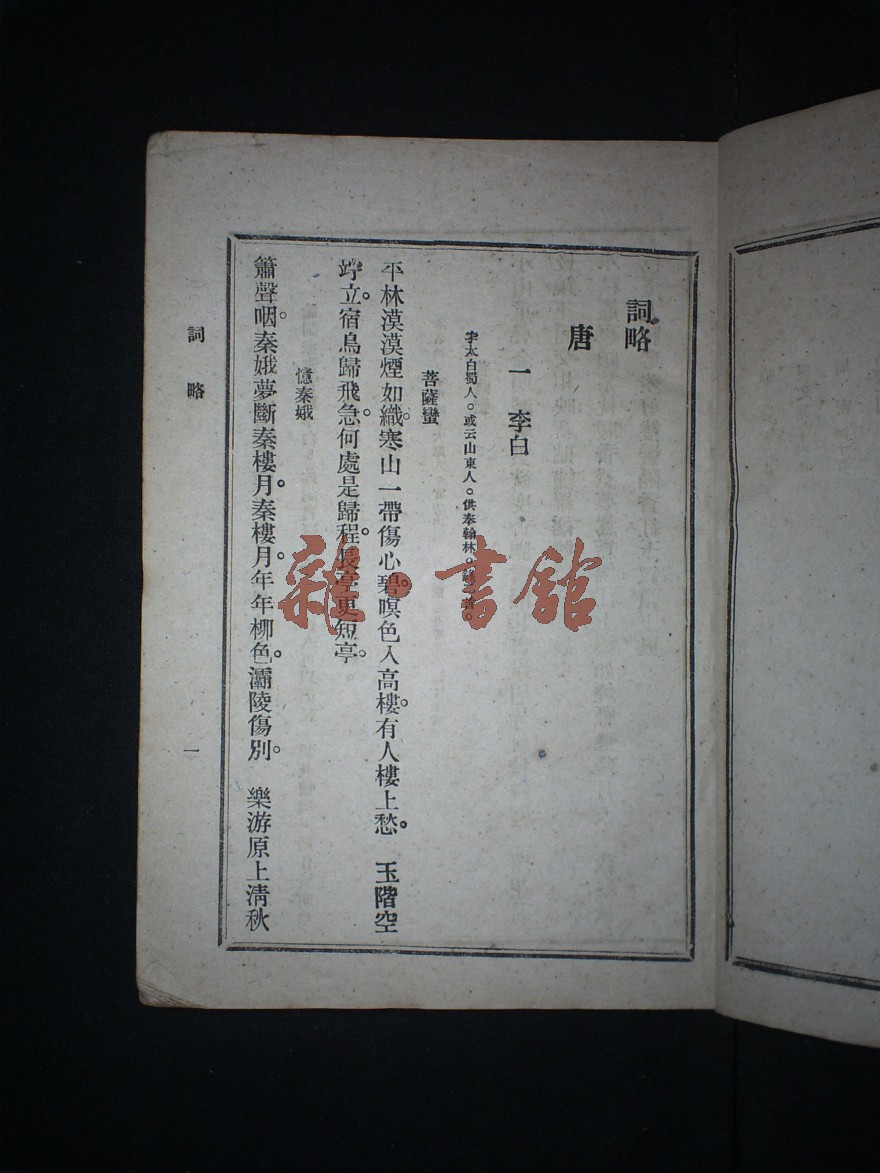 詞略
唐
一 李白
字太白蜀人。或云山東人。供奉翰林。錄二首。
菩薩蠻
平林漠漠煙如織。寒山一帶傷心碧。暝色入高樓。有人樓上愁。 玉階空
竚立。宿鳥歸飛急。何處是歸程。長亭更短亭。
憶秦娥
簫聲咽。秦娥夢斷秦樓月。秦樓月。年年柳色。灞陵傷別。 樂游原上淸秋
詞 略
一
雜·書館